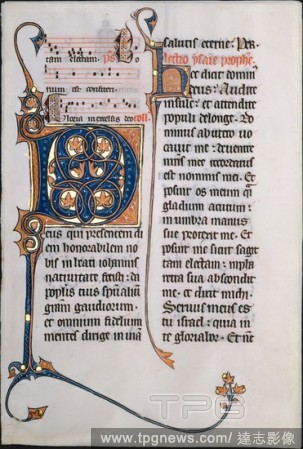 tam electam. ps Do
num est confiteri.
Alleluia coll.
eus qui presentem di
em honorabilem no
bis in beati iohannis
natiuitate fecisti: da
populis tuis spiritualium
gratiam gaudiorum.
et omnium fidelium
mentes dirige in uia
salutis eterne. Per.
lectio ysaie prophete.
Hec dicit domin
deus. Audite
insule: et attendite
populi de longe. Do
minus ab utero uo
cauit me: de uentre
matris mee recordatus
est nominis mei. Et
posuit os meum quasi
gladium acutum:
in umbra manus
sue protexit me. Et
posuit me sicut sagit
tam electam: in pha
retra sua abscondit
me. et dixit michi.
Seruus meus es
tu israel: quia in
te gloriabor. Et nunc
TPG
www.tpgnews.com/達志影像